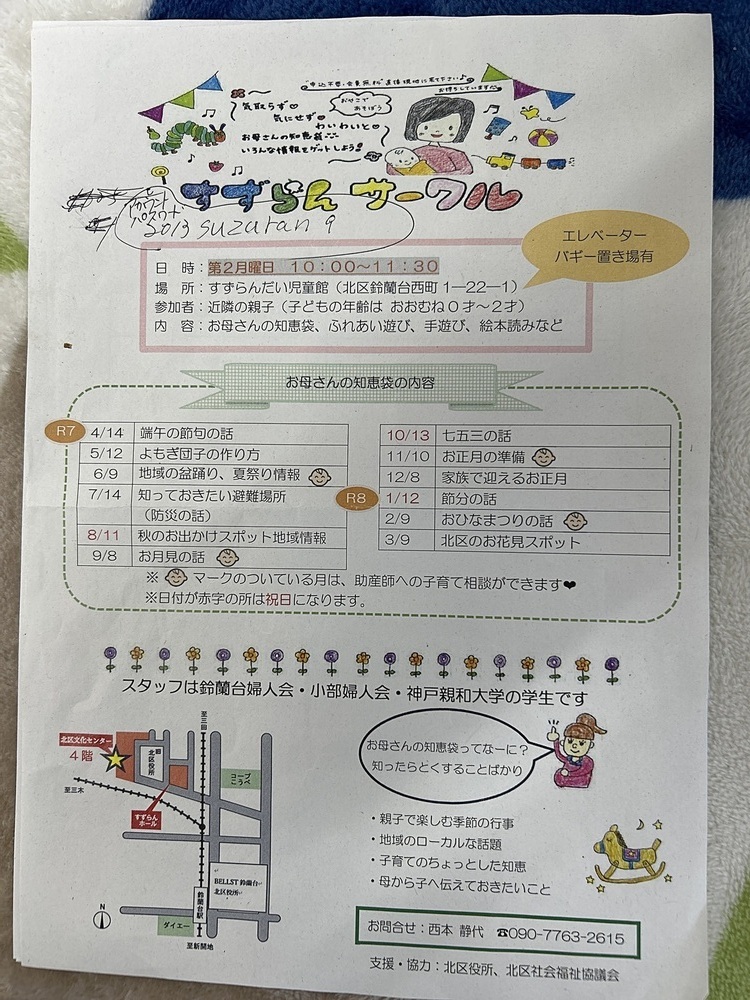 "申込不要・会費無料" 直接現地に来て下さい♪
お待ちしています
気取らず♡
気にせず♡
わいわいと♡
お母さんの知恵袋
いろんな情報をゲットしよう!
おやこで
あそぼう
すずらんサークル
アカウント
パスワード
2013 suzuran 9
エレベーター
バギー置き場有
日　時：第2月曜日　１０：００～１１：３０
場　所：すずらんだい児童館（北区鈴蘭台西町 1―22―1）
参加者：近隣の親子（子どもの年齢は おおむね０才～２才）
内　容：お母さんの知恵袋、ふれあい遊び、手遊び、絵本読みなど
お母さんの知恵袋の内容
R7
4/14 端午の節句の話
5/12 よもぎ団子の作り方
6/9 地域の盆踊り、夏祭り情報
7/14 知っておきたい避難場所
（防災の話）
8/11 秋のお出かけスポット地域情報
9/8 お月見の話
10/13 七五三の話
11/10 お正月の準備
12/8 家族で迎えるお正月
R8
1/12 節分の話
2/9 おひなまつりの話
3/9 北区のお花見スポット
※ マークのついている月は、助産師への子育て相談ができます❤
※日付が赤字の所は祝日になります。
スタッフは鈴蘭台婦人会・小部婦人会・神戸親和大学の学生です
至三田
北区文化センター
４階
旧
北区役所
コープ
こうべ
至三木
すずらん
ホール
BELLST 鈴蘭台
北区役所
鈴蘭台駅
N
ダイエー
至新開地
お母さんの知恵袋ってなーに？
知ったらとくすることばかり
・親子で楽しむ季節の行事
・地域のローカルな話題
・子育てのちょっとした知恵
・母から子へ伝えておきたいこと
お問合せ：西本 静代　☎090-7763-2615
支援・協力：北区役所、北区社会福祉協議会